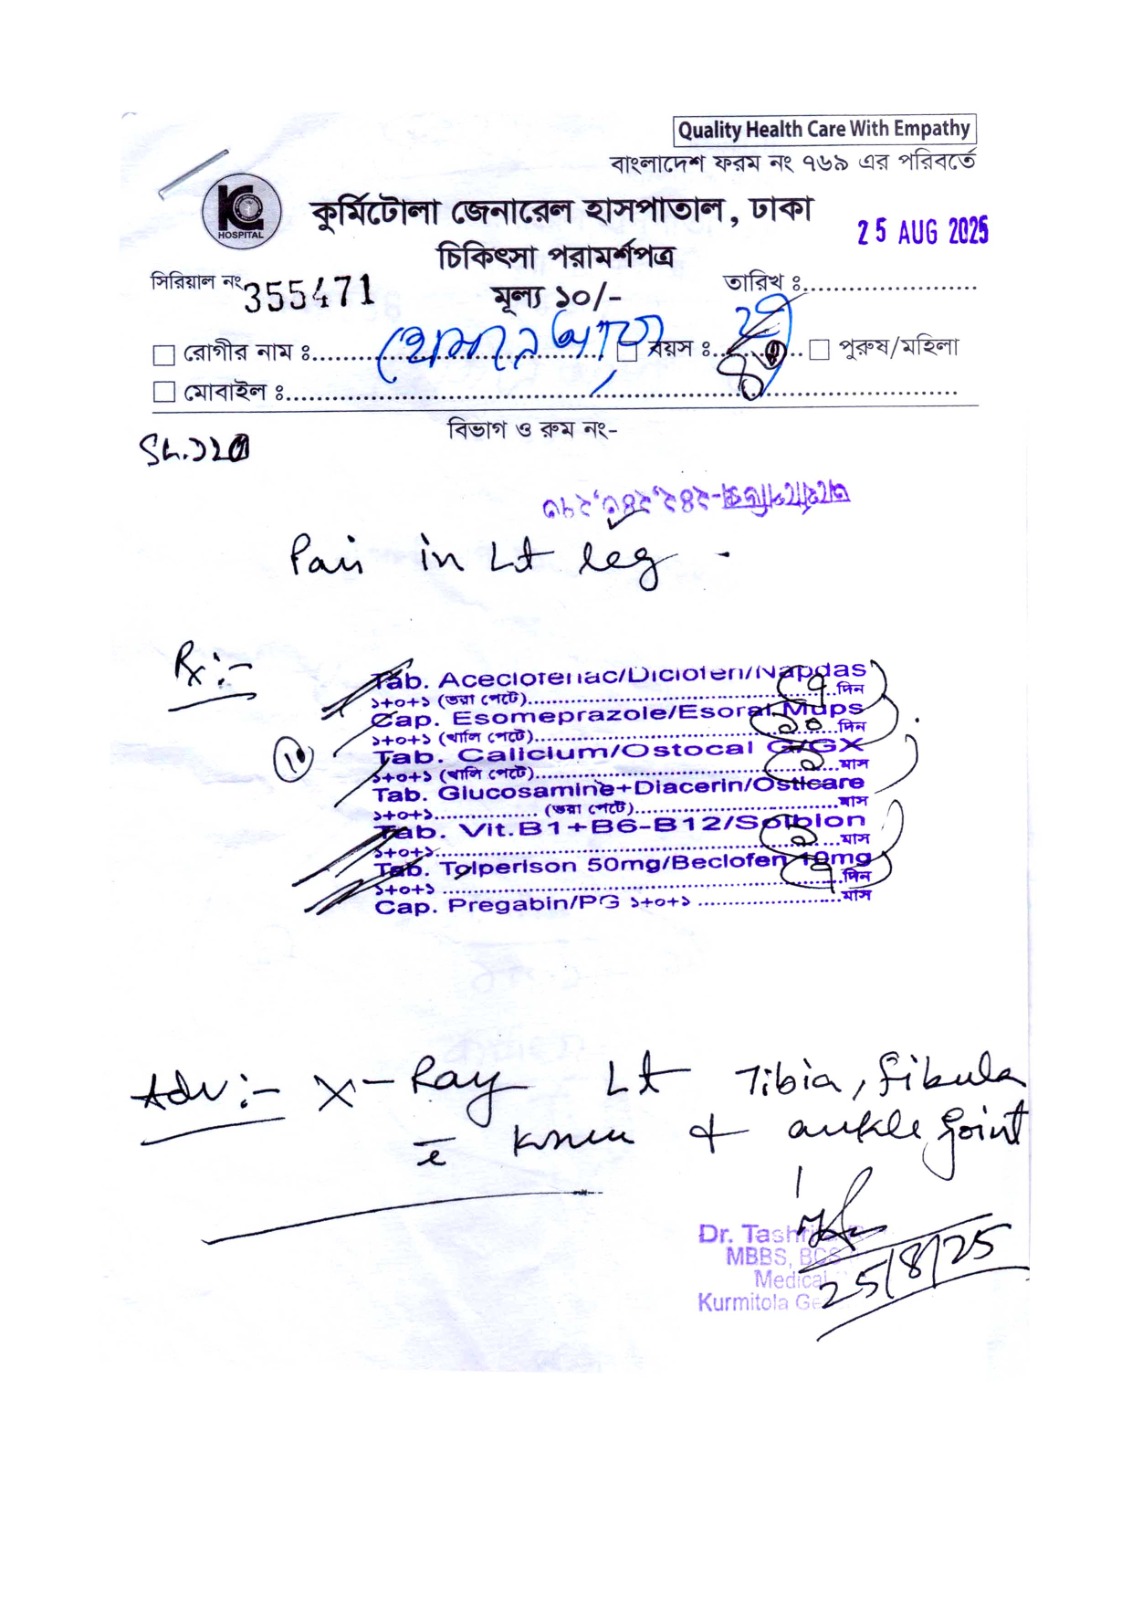 Quality Health Care With Empathy
বাংলাদেশ ফরম নং ৭৬৯ এর পরিবর্তে
KG
HOSPITAL
কুর্মিটোলা জেনারেল হাসপাতাল, ঢাকা
25 AUG 2025
চিকিৎসা পরামর্শপত্র
সিরিয়াল নং 355471
মূল্য ১০/-
তারিখ ঃ
রোগীর নাম ঃ বয়স ঃ পুরুষ/মহিলা
মোবাইল ঃ
বিভাগ ও রুম নং-
অর্থোপেডিক্স-২৪২,২৪৩,২৭০
Pain in Lt leg
Rx:-
Tab. Aceclofenac/Diclofen/Napdas
১+০+১ (ভরা পেটে) ৭ দিন
Cap. Esomeprazole/Esoral Mups
১+০+১ (খালি পেটে) ১০ দিন
Tab. Calicium/Ostocal G/GX
১+০+১ (খালি পেটে) ১ মাস
Tab. Glucosamine+Diacerin/Osticare
১+০+১ (ভরা পেটে) মাস
Tab. Vit.B1+B6-B12/Solbion
১+০+১ ১ মাস
Tab. Tolperison 50mg/Beclofen 10mg
১+০+১ ৭ দিন
Cap. Pregabin/PG ১+০+১ মাস
Adv:- X-Ray Lt Tibia, fibula
c̄ knee & ankle joint
Dr.
MBBS, BCS
Medical
Kurmitola
25/8/25